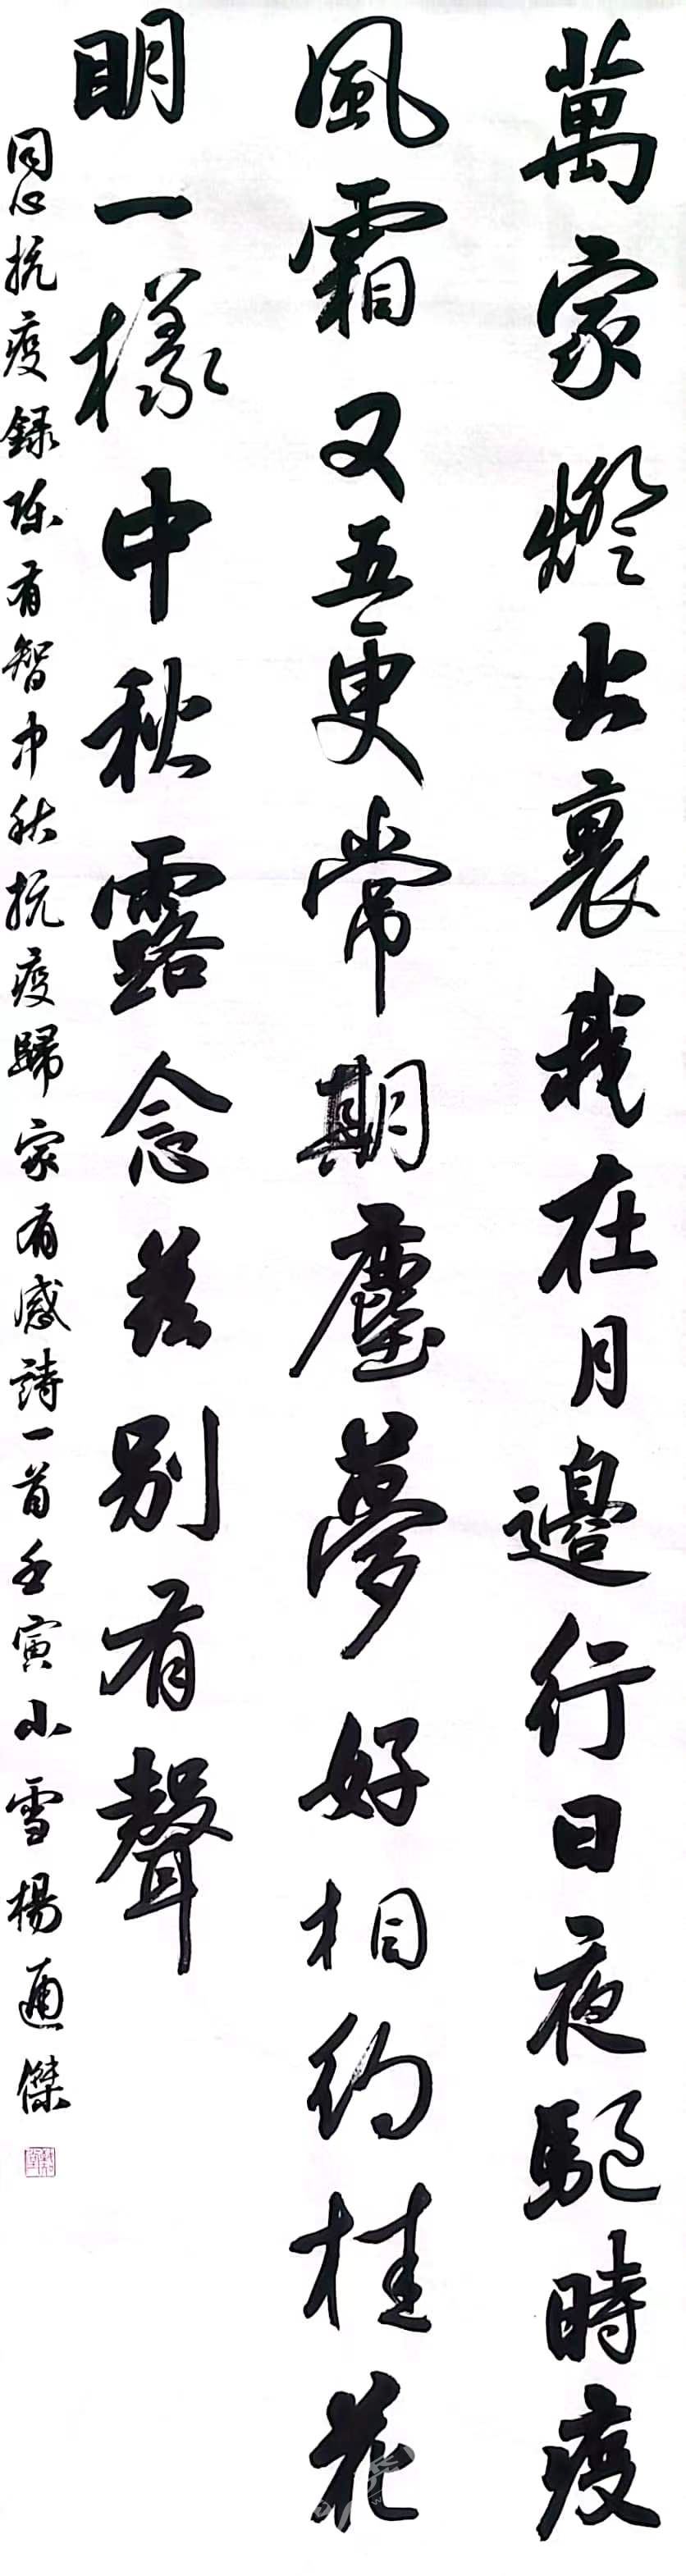 萬家燈火裏我在月邊行日夜駈時疫
風霜又五更常期塵夢好相約桂花
明一樣中秋露念茲别有聲
同心抗疫録陈有智中秋抗疫歸家有感詩一首壬寅小雪楊通傑